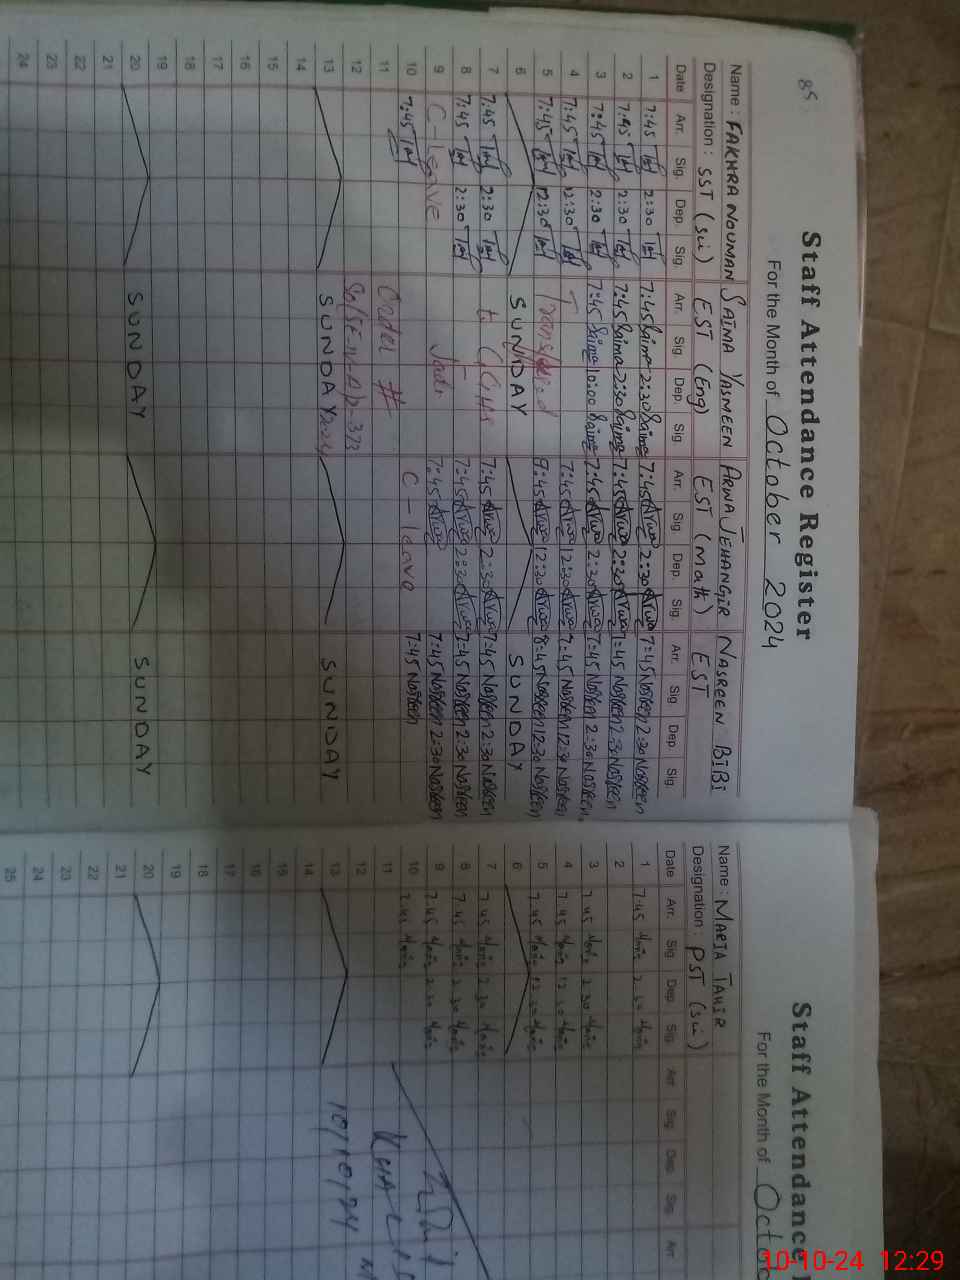 85
Staff Attendance Register
For the Month of October 2024
Name : FAKHRA NOUMAN SAIMA YASMEEN ARWA JEHANGIR NASREEN BIBI
Designation : SST (Sci) EST (Eng) EST (Math) EST
Date Arr. Sig. Dep. Sig. Arr. Sig. Dep. Sig. Arr. Sig. Dep. Sig. Arr. Sig. Dep. Sig.
1 7:45 2:30 7:45 Saima 2:30 Saima 7:45 Arwa 2:30 Arwa 7:45 Nasreen 2:30 Nasreen
2 7:45 2:30 7:45 Saima 2:30 Saima 7:45 Arwa 2:30 Arwa 7:45 Nasreen 2:30 Nasreen
3 7:45 2:30 7:45 Saima 10:00 Saima 7:45 Arwa 2:30 Arwa 7:45 Nasreen 2:30 Nasreen
4 7:45 12:30 7:45 Arwa 12:30 Arwa 7:45 Nasreen 12:30 Nasreen
5 7:45 12:30 Transfered 9:45 Arwa 12:30 Arwa 8:45 Nasreen 12:30 Nasreen
6 SUNDAY SUNDAY
7 7:45 2:30 to GGHS 7:45 Arwa 2:30 Arwa 7:45 Nasreen 2:30 Nasreen
8 7:45 2:30 7:45 Arwa 2:30 Arwa 7:45 Nasreen 2:30 Nasreen
9 C-leave 7:45 Arwa 7:45 Nasreen 2:30 Nasreen
10 7:45 C-leave 7:45 Nasreen
11 Order #
12
13 SUNDAY SUNDAY
14
15
16
17
18
19
20 SUNDAY SUNDAY
21
22
23
24
Staff Attendance
For the Month of Octo
Name : MARIA TAHIR
Designation : PST (Sci)
Date Arr. Sig. Dep. Sig. Arr. Sig. Dep. Sig. Arr.
1 7:45 Maria 2:30 Maria
2
3 7:45 Maria 2:30 Maria
4 7:45 Maria 12:30 Maria
5 7:45 Maria 12:30 Maria
6
7 7:45 Maria 2:30 Maria
8 7:45 Maria 2:30 Maria
9 7:45 Maria 2:30 Maria
10 7:45 Maria
11
12
13
14
15
16
17
18
19
20
21
22
23
24
25
10/10/24
10-10-24 12:29